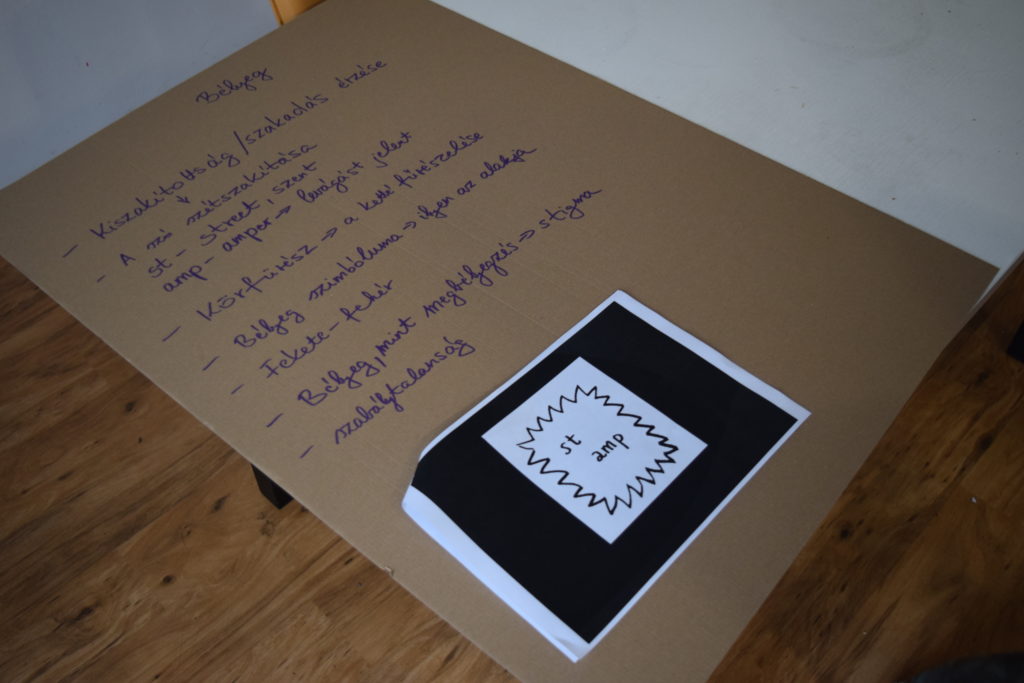 Bélyeg
- Kiszakítottság/szakadás érzése
- A szó szétszakítása
st - street, szent
amp - amper → levágást jelent
- Körfűrész → a kettéfűrészelése
- Bélyeg szimbóluma → ilyen az alakja
- Fekete-fehér
- Bélyeg, mint megbélyegzés → stigma
- szabálytalanság
st
amp